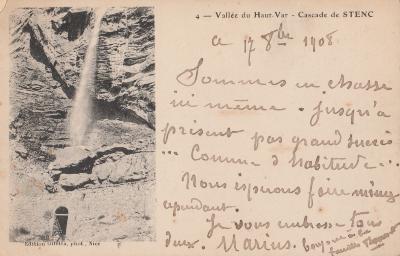 4 — Vallée du Haut-Var - Cascade de STENC
ce 17 8bre 1908
Sommes en chasse
ici même. Jusqu'à
présent pas grand succès
... Comme d'habitude ...
Nous espérons faire mieux
cependant.
Je vous embrasse tous
deux. Marius.
bonjour à la
famille
Edition Giletta, phot., Nice